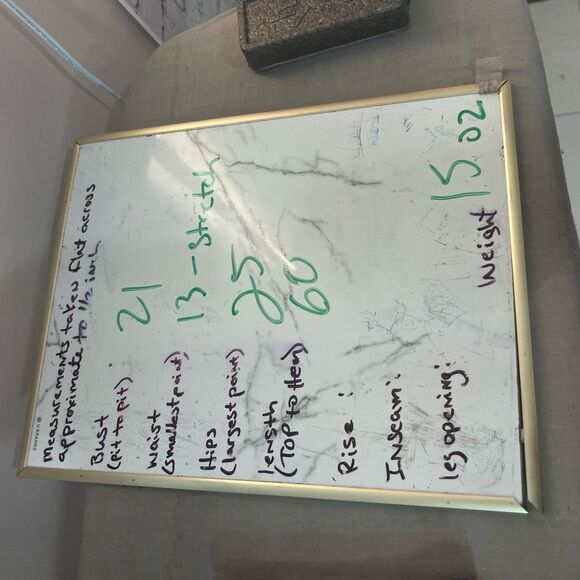 Measurements taken flat across
approximate to 1/2 inch
Bust 21
(pit to pit)
Waist 13 - Stretch
(smallest point)
Hips 25
(largest point)
Length 60
(Top to Hem)
Rise:
Inseam:
leg opening:
Weight 15 oz